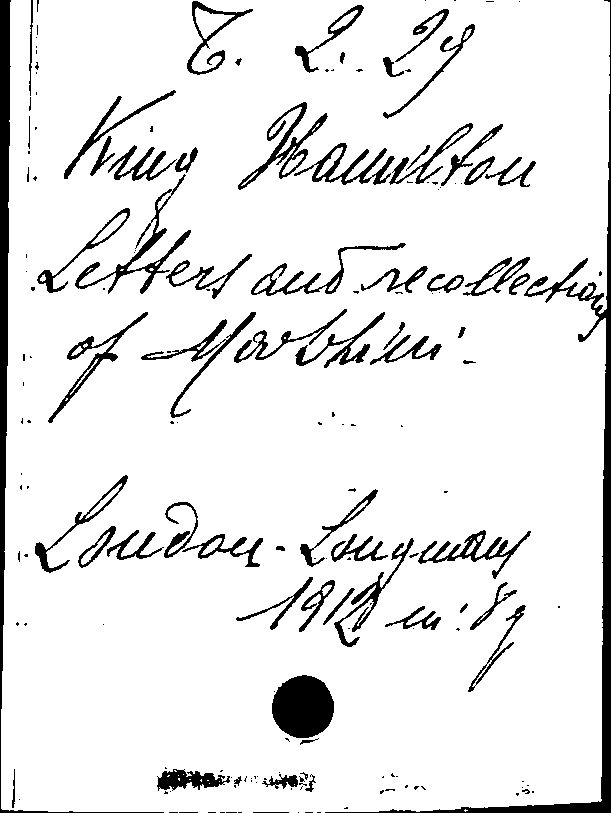 T. 2. 29
King Hamilton
Letters and recollections
of Mazzini.
London - Longmans
1912 in: 8º